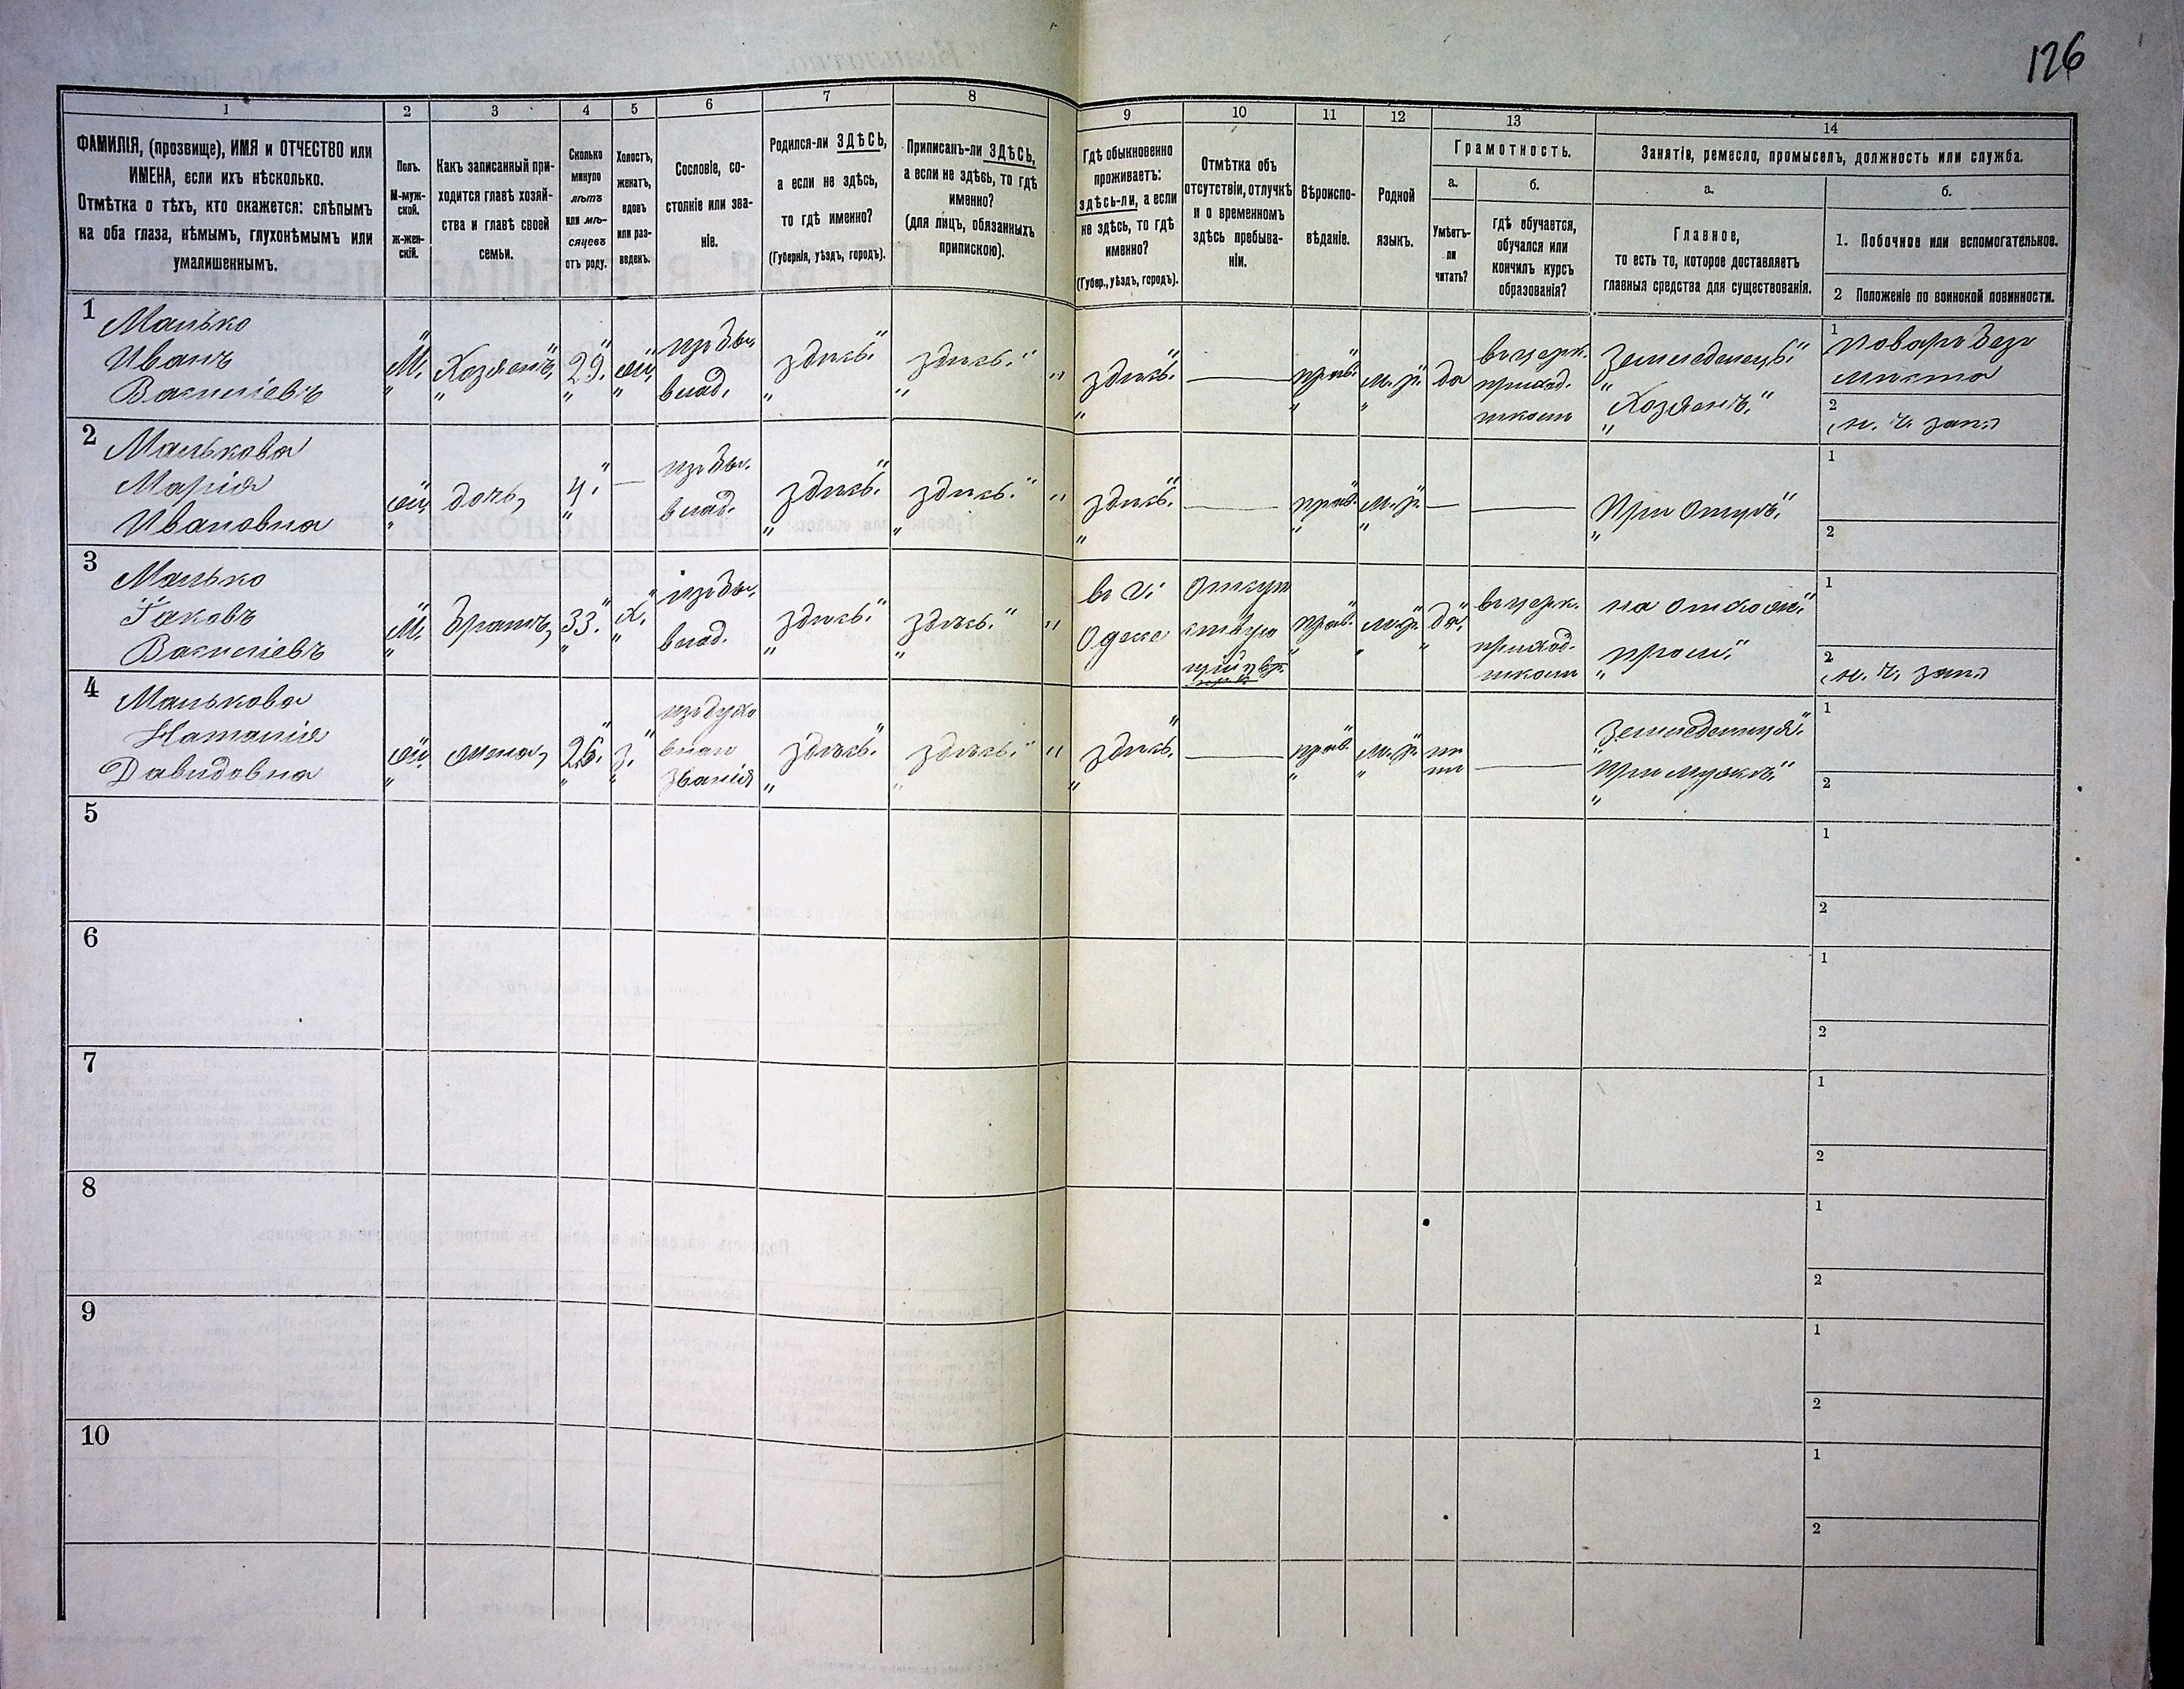 126
1
2
3
4
5
6
7
8
9
10
11
12
13
14
ФАМИЛІЯ, (прозвище), ИМЯ и ОТЧЕСТВО или
ИМЕНА, если ихъ нѣсколько.
Отмѣтка о тѣхъ, кто окажется: слѣпымъ
на оба глаза, нѣмымъ, глухонѣмымъ или
умалишеннымъ.
Полъ.
М-муж-
ской.
ж-жен-
скій.
Какъ записанный при-
ходится главѣ хозяй-
ства и главѣ своей
семьи.
Сколько
минуло
лѣтъ
или мѣ-
сяцевъ
отъ роду.
Холостъ,
женатъ,
вдовъ
или раз-
веденъ.
Сословіе, со-
стояніе или зва-
ніе.
Родился-ли ЗДѢСЬ,
а если не здѣсь,
то гдѣ именно?
(Губернія, уѣздъ, городъ).
Приписанъ-ли ЗДѢСЬ,
а если не здѣсь, то гдѣ
именно?
(для лицъ, обязанныхъ
припискою).
Гдѣ обыкновенно
проживаетъ:
здѣсь-ли, а если
не здѣсь, то гдѣ
именно?
(Губер., уѣздъ, городъ).
Отмѣтка объ
отсутствіи, отлучкѣ
и о временномъ
здѣсь пребыва-
ніи.
Вѣроиспо-
вѣданіе.
Родной
языкъ.
Грамотность.
а.
Умѣетъ-
ли
читать?
б.
Гдѣ обучается,
обучался или
кончилъ курсъ
образованія?
Занятіе, ремесло, промыселъ, должность или служба.
а.
Главное,
то есть то, которое доставляетъ
главныя средства для существованія.
б.
1. Побочное или вспомогательное.
2 Положеніе по воинской повинности.
1
Манько
Иванъ
Василіевъ
М.
Хозяинъ
29.
ж.
изъ быв.
влад.
здѣсь.
здѣсь.
здѣсь.
прав.
м. р.
да
въ церк.
приход.
школѣ
Земледелецъ.
Хозяинъ.
1
поваръ безъ
места
2
н. ч. зап.
2
Манькова
Марія
Ивановна
ж.
дочь
4.
изъ быв.
влад.
здѣсь.
здѣсь.
здѣсь.
прав.
м. р.
При отцѣ.
1
2
3
Манько
Іаковъ
Василіевъ
М.
братъ
33.
х.
изъ быв.
влад.
здѣсь.
здѣсь.
въ г.
Одесе
Отсут
ствую
щій
прав.
м. р.
да
въ церк.
приход.
школѣ
на отхож.
пром.
1
2
н. ч. зап.
4
Манькова
Наталія
Давидовна
ж.
жена
26.
з.
изъ духо
внаго
званія
здѣсь.
здѣсь.
здѣсь.
прав.
м. р.
Земледелица.
При мужѣ.
1
2
5
1
2
6
1
2
7
1
2
8
1
2
9
1
2
10
1
2